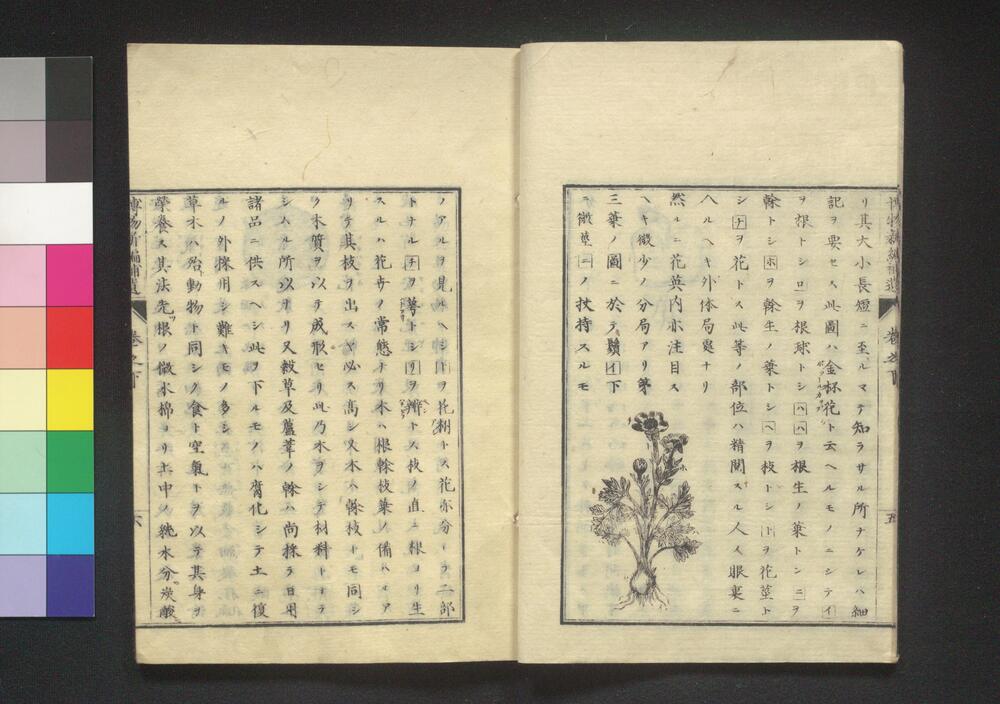 リ其大小長短ニ至ルマテ知ラサル所ナケレハ細
記ヲ要セス此圖ハ金杯花ト云ヘルモノニシテイ
ヲ根トシロヲ根球トシハハヲ根生ノ葉トシニヲ
幹トシホヲ幹生ノ葉トシヘヲ枝トシトヲ花莖ト
シチヲ花トス此等ノ部位ハ精閲スル人ノ眼裏ニ
入ルヘキ外体局處ナリ
然ルニ花英内亦注目ス
ヘキ微少ノ分局アリ第
三葉ノ圖ニ於テ鬚イ下
ニ微莖ニノ扶持スルモ
博物新編補遺 卷之下 五
ノアルヲ見ルヘシ ヲ花 トス花亦分レテ二部
トナルチヲ萼トシリヲ瓣トス枝ノ直ニ根ヨリ生
スルハ花卉ノ常態ナリ木ハ根幹枝葉ノ備ハルア
リテ其枝ヲ出スヤ必ス高シ又木ハ幹枝トモ同シ
ク木質ヲ以テ成形セリ此乃木ヲシテ材料トナラ
シムル所以ナリ又穀草及蘆葦ノ幹ハ尚採テ日用
諸品ニ供スヘシ此ヲ下ルモノハ腐化シテ土ニ復
ルノ外採用シ難キモノ多シ
草木ハ殆動物ト同シク食ト空氣トヲ以テ其身ヲ
榮養ス其法先ツ根ノ微水棉ヨリ土中ノ純水分炭酸
博物新編補遺 卷之下 六